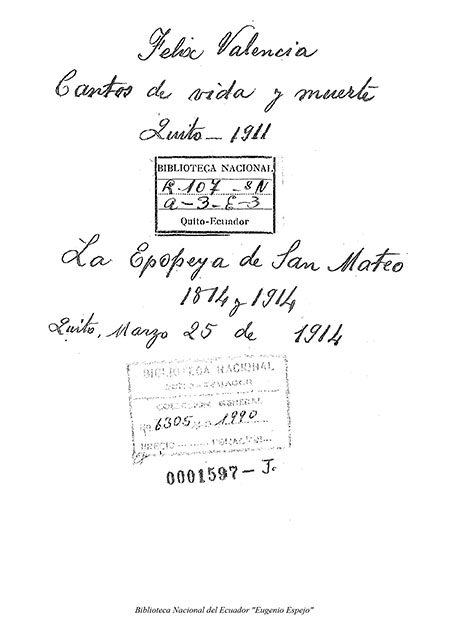 Felix Valencia
Cantos de vida y muerte
Quito - 1911
BIBLIOTECA NACIONAL
R-107-8N
a-3-E-3
Quito-Ecuador
La Epopeya de San Mateo
1814 y 1914
Quito, Marzo 25 de 1914
BIBLIOTECA NACIONAL
QUITO-ECUADOR
COLECCION GENERAL
Nº 6305 1990
PRECIO
0001597 - J.
Biblioteca Nacional del Ecuador "Eugenio Espejo"